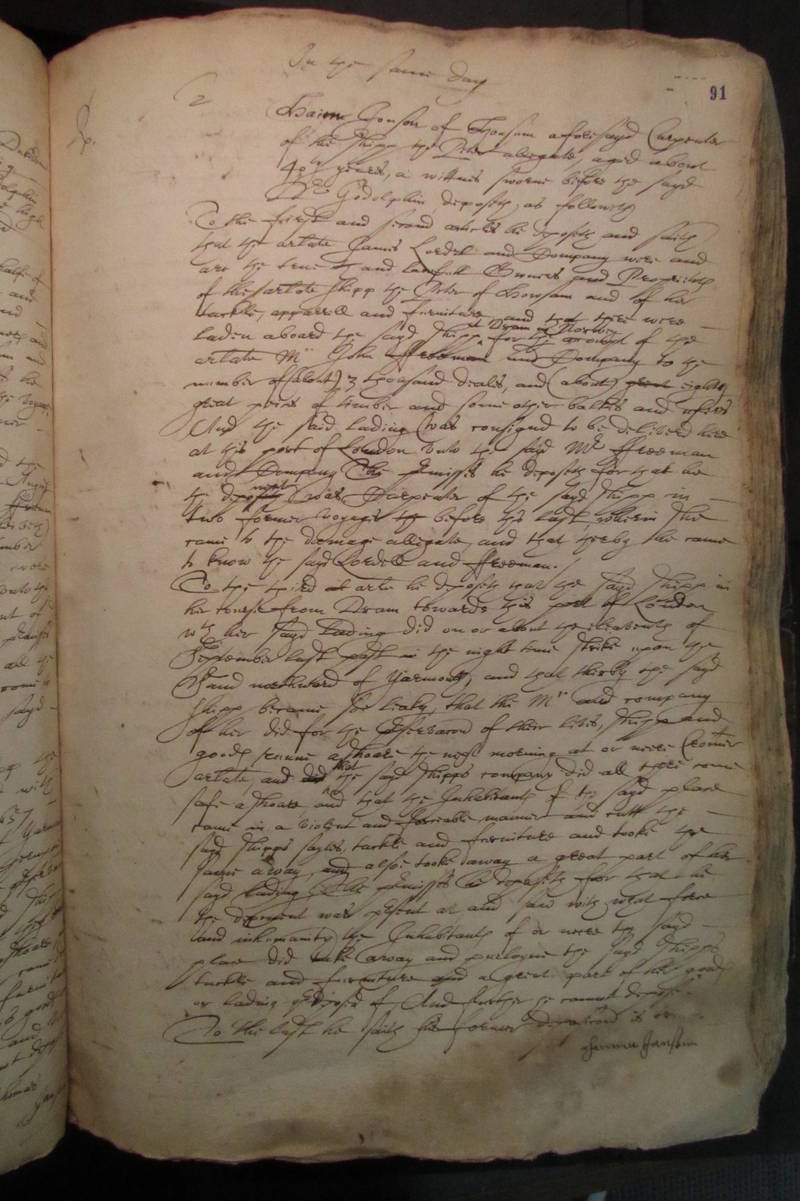 In the same day
91
2
Jonson of Housum aforesayd Carpenter
of the shipp the Peter allegate, aged about
40 yeares, a wittnes sworne before the sayd
Dr Godolphin deposeth as followeth
To the first and second articles he deposeth and saith
that the arlate James Lordell and Company were and
are the true and lawfull Owners and Proprietors
of the arlate shipp the Peter of Housum and of her
tackle, apparrell and furniture, and that there were
at Dram in Norway
laden aboard the said shipp for the account of the
arlate Mr John ffreeman and Company to the
number of (about) 3 thousand deales, and (about) eighty
great peeces of timber and some other balkes and
And the said lading was consigned to be delivered here
at this port of London unto the said Mr ffreeman
and Company The premisses he deposeth for that he
the deponent was Carpenter of the sayd shipp in
two former voyages before this last wherein shee
came to the damage allegate, and that thereby hee came
to know the said Lordell and ffreeman.
To the third arle he deposeth that the sayd shipp in
her course from Dram towards this port of London
wth her sayd Lading did on or about the eleaventh of
September last past in the night time strike upon the
Sand northward of Yarmouth, and that thereby the said
shipp became soe leaky, that the Mr and company
of her did for the preservacon of their lives, shipp and
goods runne a shoare the next morning at or neere Cromer
arlate, and that the sayd shipps company did all there come
safe a shoare and that the Inhabitants of the sayd place
came in a violent and forceable manner and cutt the
said shipps sayles, tackle and furniture and tooke the
same away, and alsoe tooke away a great part of her
said lading. The premisses he deposeth for that he
the deponent was present at and saw wth what force
and inhumanity the Inhabitants of or neere the said
place did take away and purloyne the sayd shipps
tackle and furniture and a great part of her goods
or lading predeposed of And further he cannot depose.
To the last he saith his former deposicon is